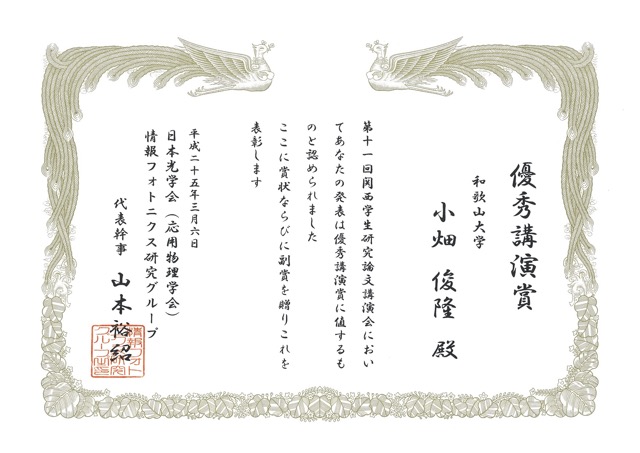 優秀講演賞
和歌山大学
小畑 俊隆 殿
第十一回関西学生研究論文講演会におい
てあなたの発表は優秀講演賞に値するも
のと認められました
ここに賞状ならびに副賞を贈りこれを
表彰します
平成二十五年三月六日
日本光学会（応用物理学会）
情報フォトニクス研究グループ
代表幹事 山本裕紹
情報フォト
ニクス研究
グループ之印